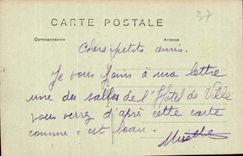 37
CARTE POSTALE
Correspondance Adresse
Chers petits amis.
Je vous joins à ma lettre
une des salles de l'Hôtel de Ville
vous verrez d'après cette carte
comme c'est beau.